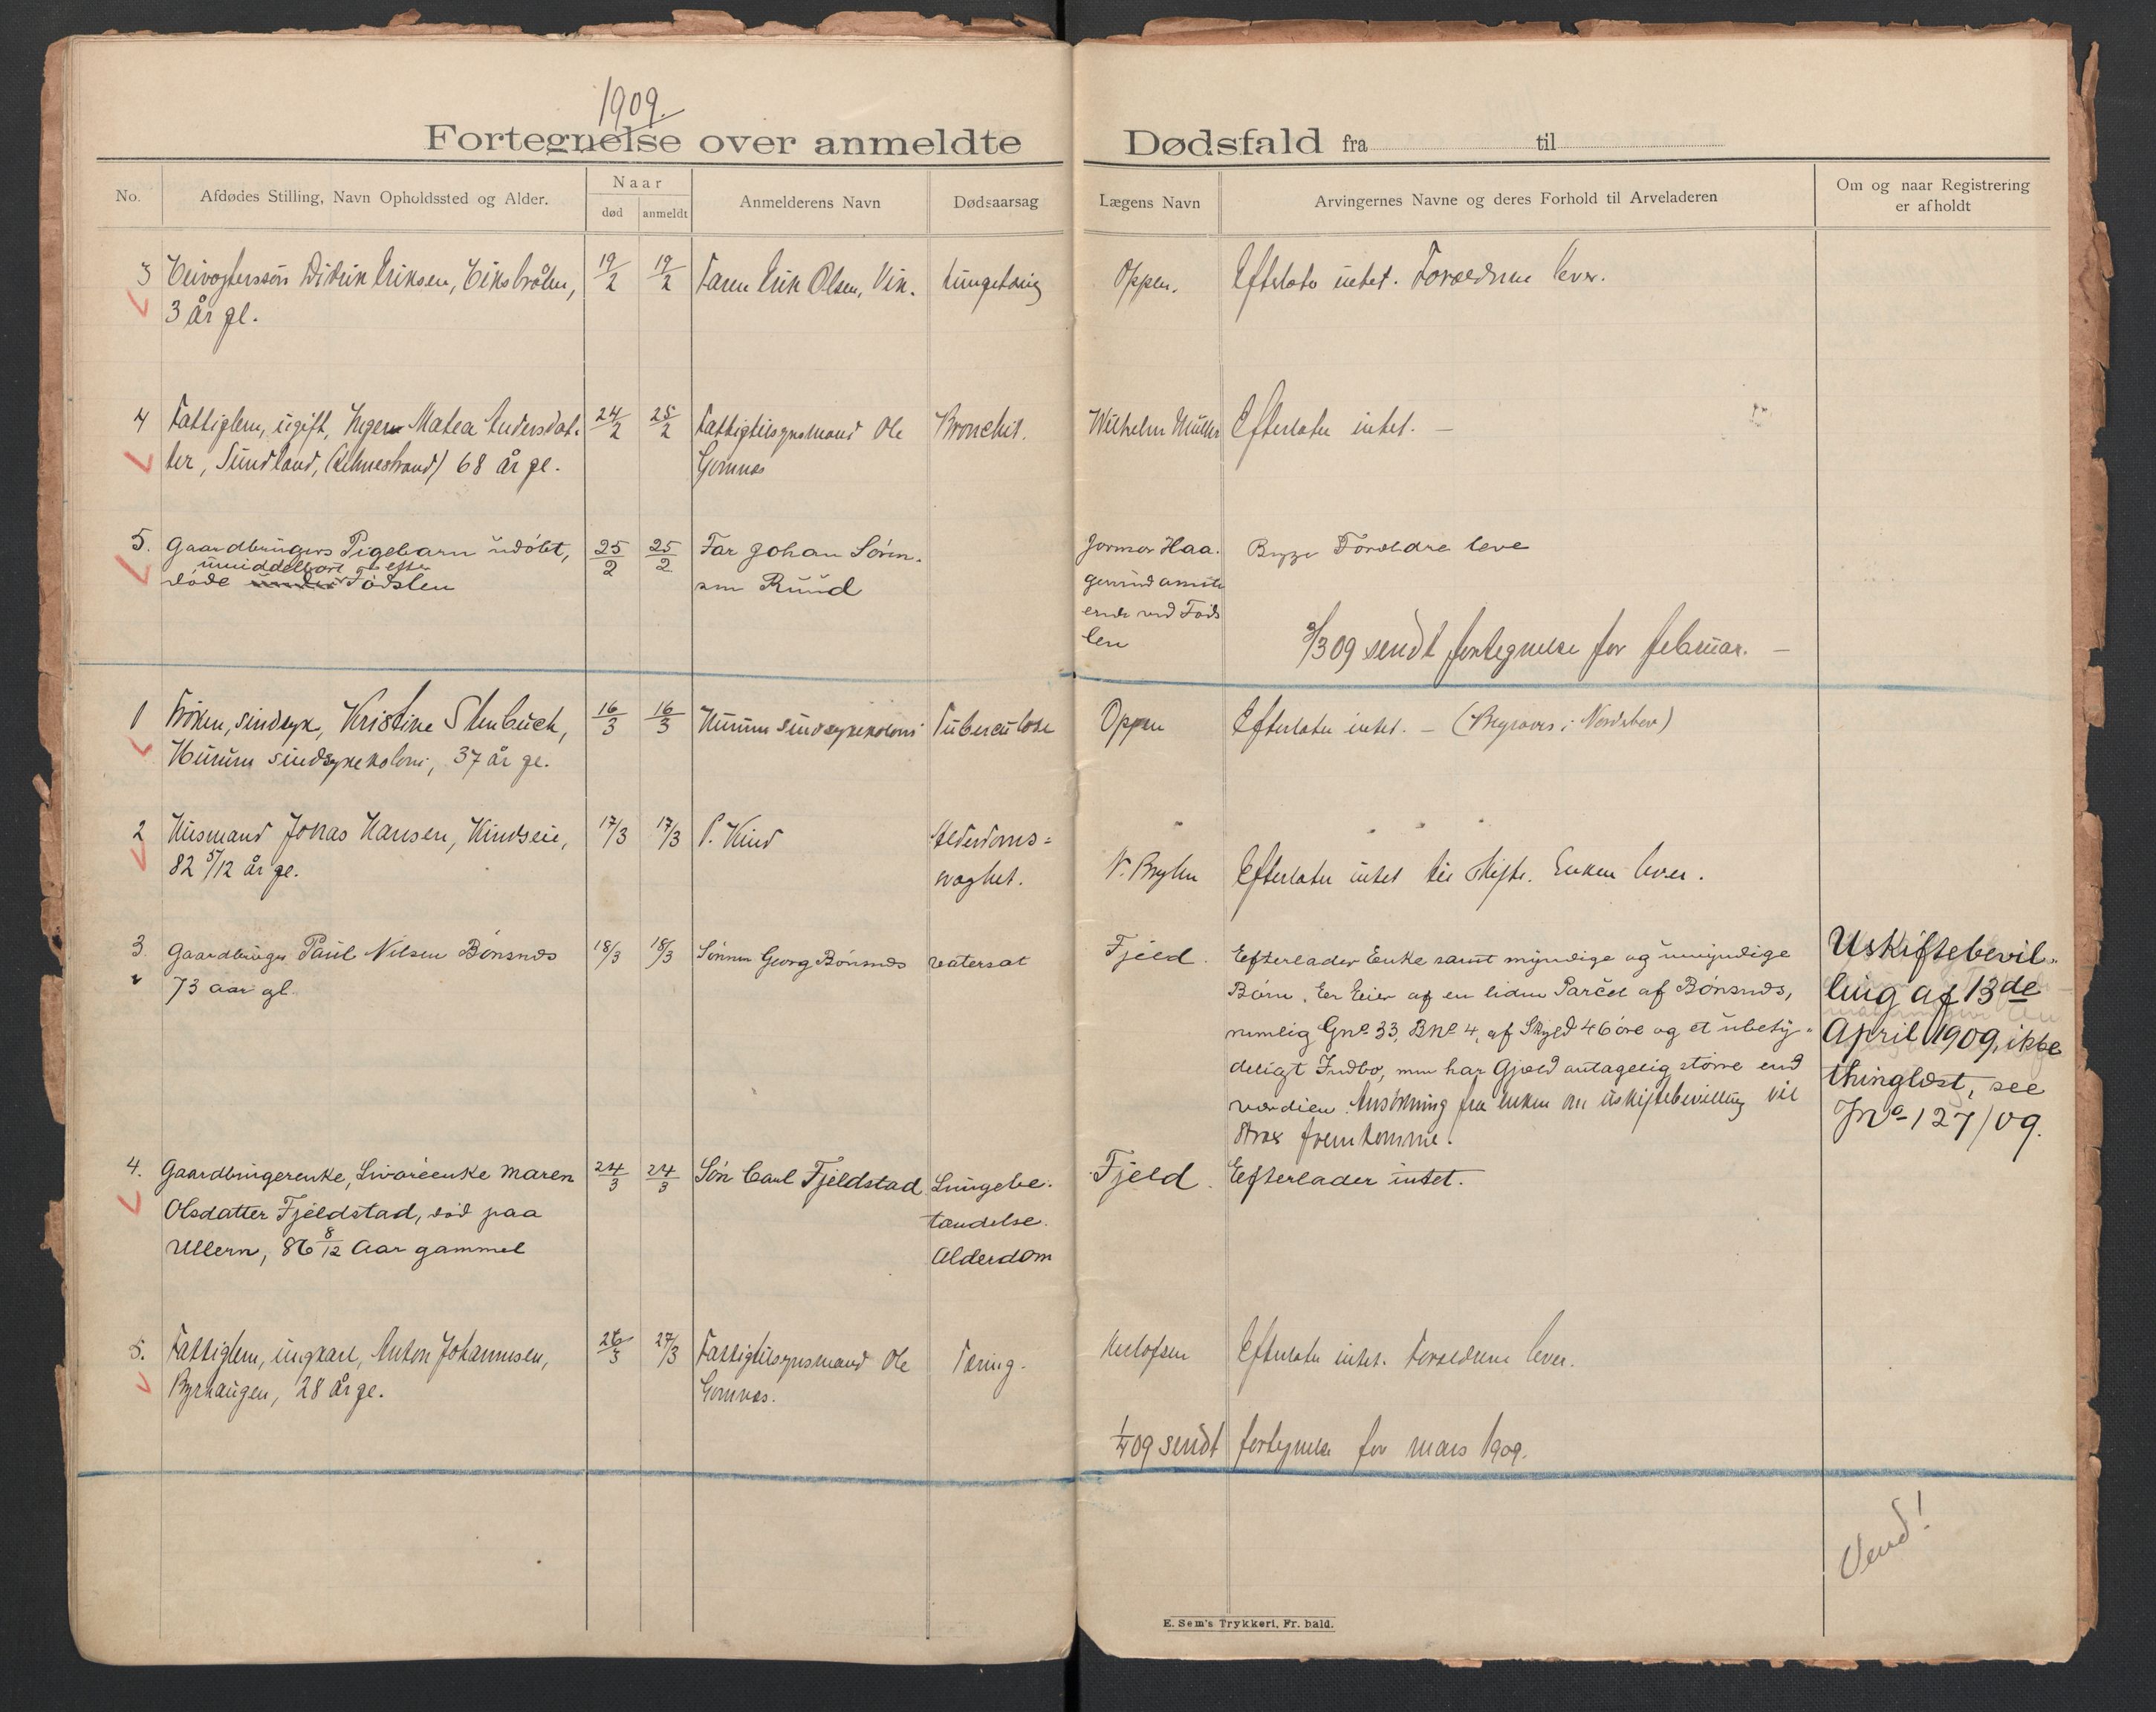 1909.
Fortegnelse over anmeldte Dødsfald fra til
No.
Afdødes Stilling, Navn Opholdssted og Alder.
Naar
død
anmeldt
Anmelderens Navn
Dødsaarsag
Lægens Navn
Arvingernes Navne og deres Forhold til Arveladeren
Om og naar Registrering
er afholdt
3 Didrik Eriksen, 19/2 19/2 Faren Erik Olsen, Vik. Oppen. Efterlater intet. Forældrene lever.
3 år gl.
4 Fattiglem, ugift, Inger Matea Andersdat- 24/2 25/2 Fattigtilsynsmand Ole Bronchit. Wilhelm Müller Efterlater intet. —
ter, Sundland, 68 år gl. Gomnæs
5. Gaardbrugers Pigebarn udöbt, 25/2 25/2 Far Johan Sören- Jormor Haa- Begge Forældre leve
umiddelbart efter
døde under Fødslen sen Ruud gerud assiste
erende ved Føds
len
2/3 09 sendt fortegnelse for februar. —
1 Frøken, sindsyk, Kristine Stenbuch, 16/3 16/3 Hurum sindsykekoloni Tuberculose Oppen Efterlater intet. — (Begraves i Norderhov)
Hurum sindsykekoloni, 37 år gl.
2 Husmand Jonas Hansen, Hindseie, 17/3 17/3 P. Hind Alderdoms- N. Bryhn Efterlater intet til skifte. Enken lever.
82 5/12 år gl. svaghet.
3 Gaardbruger Paul Nilsen Bönsnæs 18/3 18/3 Sönnen Georg Bönsnæs Vatersot Fjeld. Efterlader Enke samt myndige og umyndige
73 aar gl.
Börn. Er Eier af en liden Parcel af Bönsnæs,
nemlig Gno 33, BNo 4, af Skyld 46 öre og et ubety-
deligt Indbo, men har Gjæld antagelig större end
værdien. Ansökning fra enken om uskiftebevilling vil
strax fremkomme.
Uskiftebevil-
ling af 13de
April 1909, ikke
thinglæst, see
JNo 127/09.
4. Gaardbrugerenke, Maren 24/3 24/3 Sön Carl Fjeldstad Lungebe- Fjeld. Efterlader intet.
Olsdatter Fjeldstad, död paa tændelse.
Ullern, 86 8/12 Aar gammel Alderdom
5. Fattiglem, ungkarl, Anton Johannesen, 26/3 27/3 Fattigtilsynsmand Ole Tæring. Herlofsen Efterlater intet. Forældrene lever.
Byrhaugen, 28 år gl. Gomnæs.
1/4 09 sendt fortegnelse for mars 1909.
Vend!
E. Sem's Trykkeri, Fr. hald.